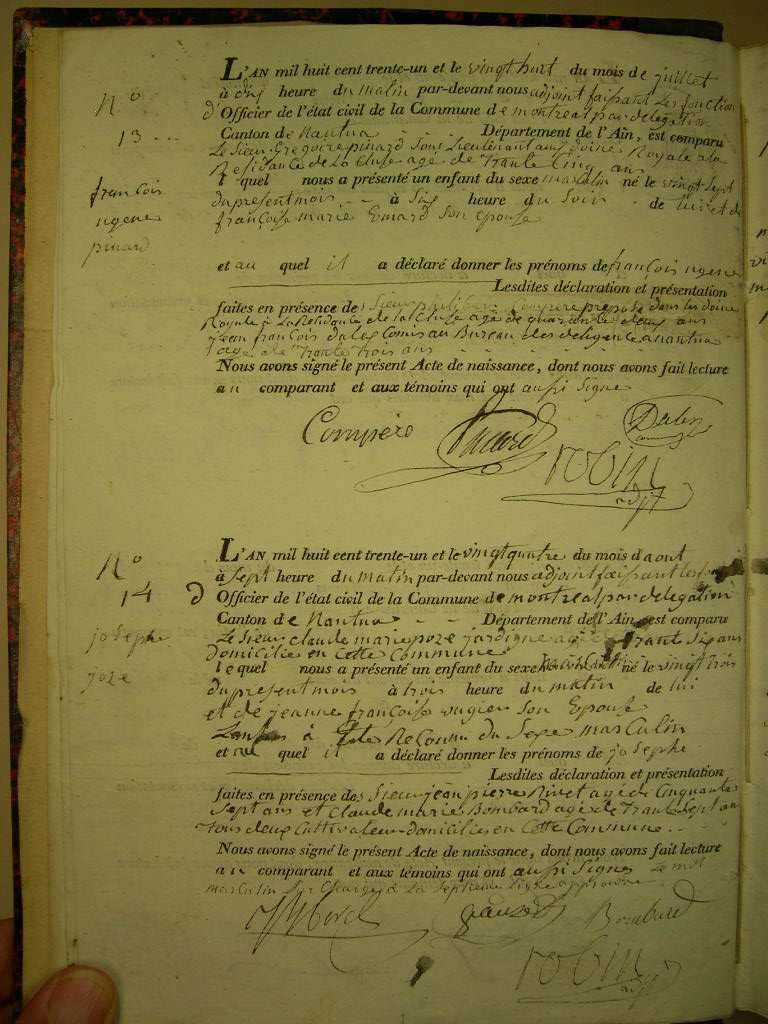 N.o
13
françois
ugene
pinard
L'AN mil huit cent trente-un et le vingt huit du mois de juillet
à dix heure du matin par-devant nous adjoint faisant les fonction
d' Officier de l'état civil de la Commune de montreal par delegation
Canton de Nantua Département de l'Ain, est comparu
Le Sieur Gregoire pinard Sous Lieutenant aux Doine Royale a la
Residance de La Cluse agé de Trante Cinq ans
lequel nous a présenté un enfant du sexe masculin né le vingt Sept
du present mois à Six heure du Soir de lui et de
françoise marie Emard Son epouse
et au quel il a déclaré donner les prénoms de françois ugene
Lesdites déclaration et présentation
faites en présence des Sieur Compere preposé dans les doine
Royale à La Residance de la Cluse agé de quarante deux ans
jean françois dalex Comis au Bureau des deligence a nantua
agé de Trante trois ans
Nous avons signé le présent Acte de naissance, dont nous avons fait lecture
au comparant et aux témoins qui ont aussi Signe
Compère Pinard Dalex
robin
adjt
N.o
14
josephe
joze
L'AN mil huit cent trente-un et le vingt quatre du mois d aout
à Sept heure du matin par-devant nous adjoint faissant les
d Officier de l'état civil de la Commune de montreal par delegation
Canton de Nantua Département de l'Ain, est comparu
Le Sieur claude marie joze jardigne agé Trante Six ans
domicilie en Cette Commune
lequel nous a présenté un enfant du sexe né le vingt trois
du present mois à trois heure du matin de lui
et de jeanne françoise Son Epouse
à Reconnu du Sexe masculin
et au quel il a déclaré donner les prénoms de josephe
Lesdites déclaration et présentation
faites en présence des Sieur jean pierre Rivet agé de Cinquante
Sept ans et Claude marie Bombard agé de Trante Sept an
Tous deux Cultivateur domicilies en Cette Commune
Nous avons signé le présent Acte de naissance, dont nous avons fait lecture
au comparant et aux témoins qui ont aussi Signes Le mot
masculin Sur Chargé à La Septieme ligne approuvé
Bombard
robin
adjt